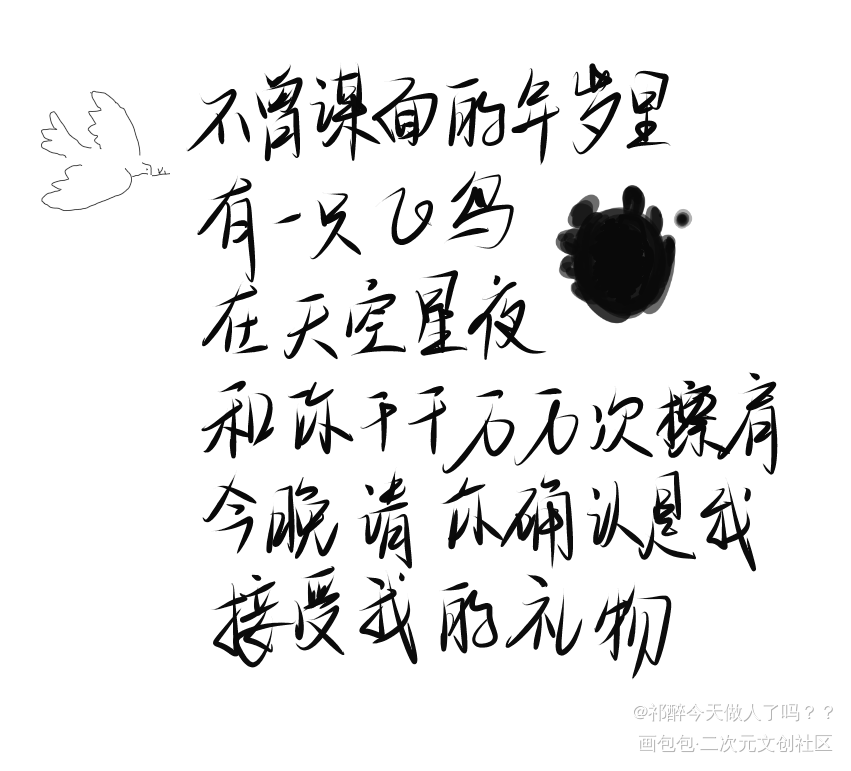 不曾谋面的年岁里
有一只飞鸟
在天空星夜
和你千千万万次擦肩
今晚请你确认是我
接受我的礼物
@祁醉今天做人了吗？？
画包包·二次元文创社区